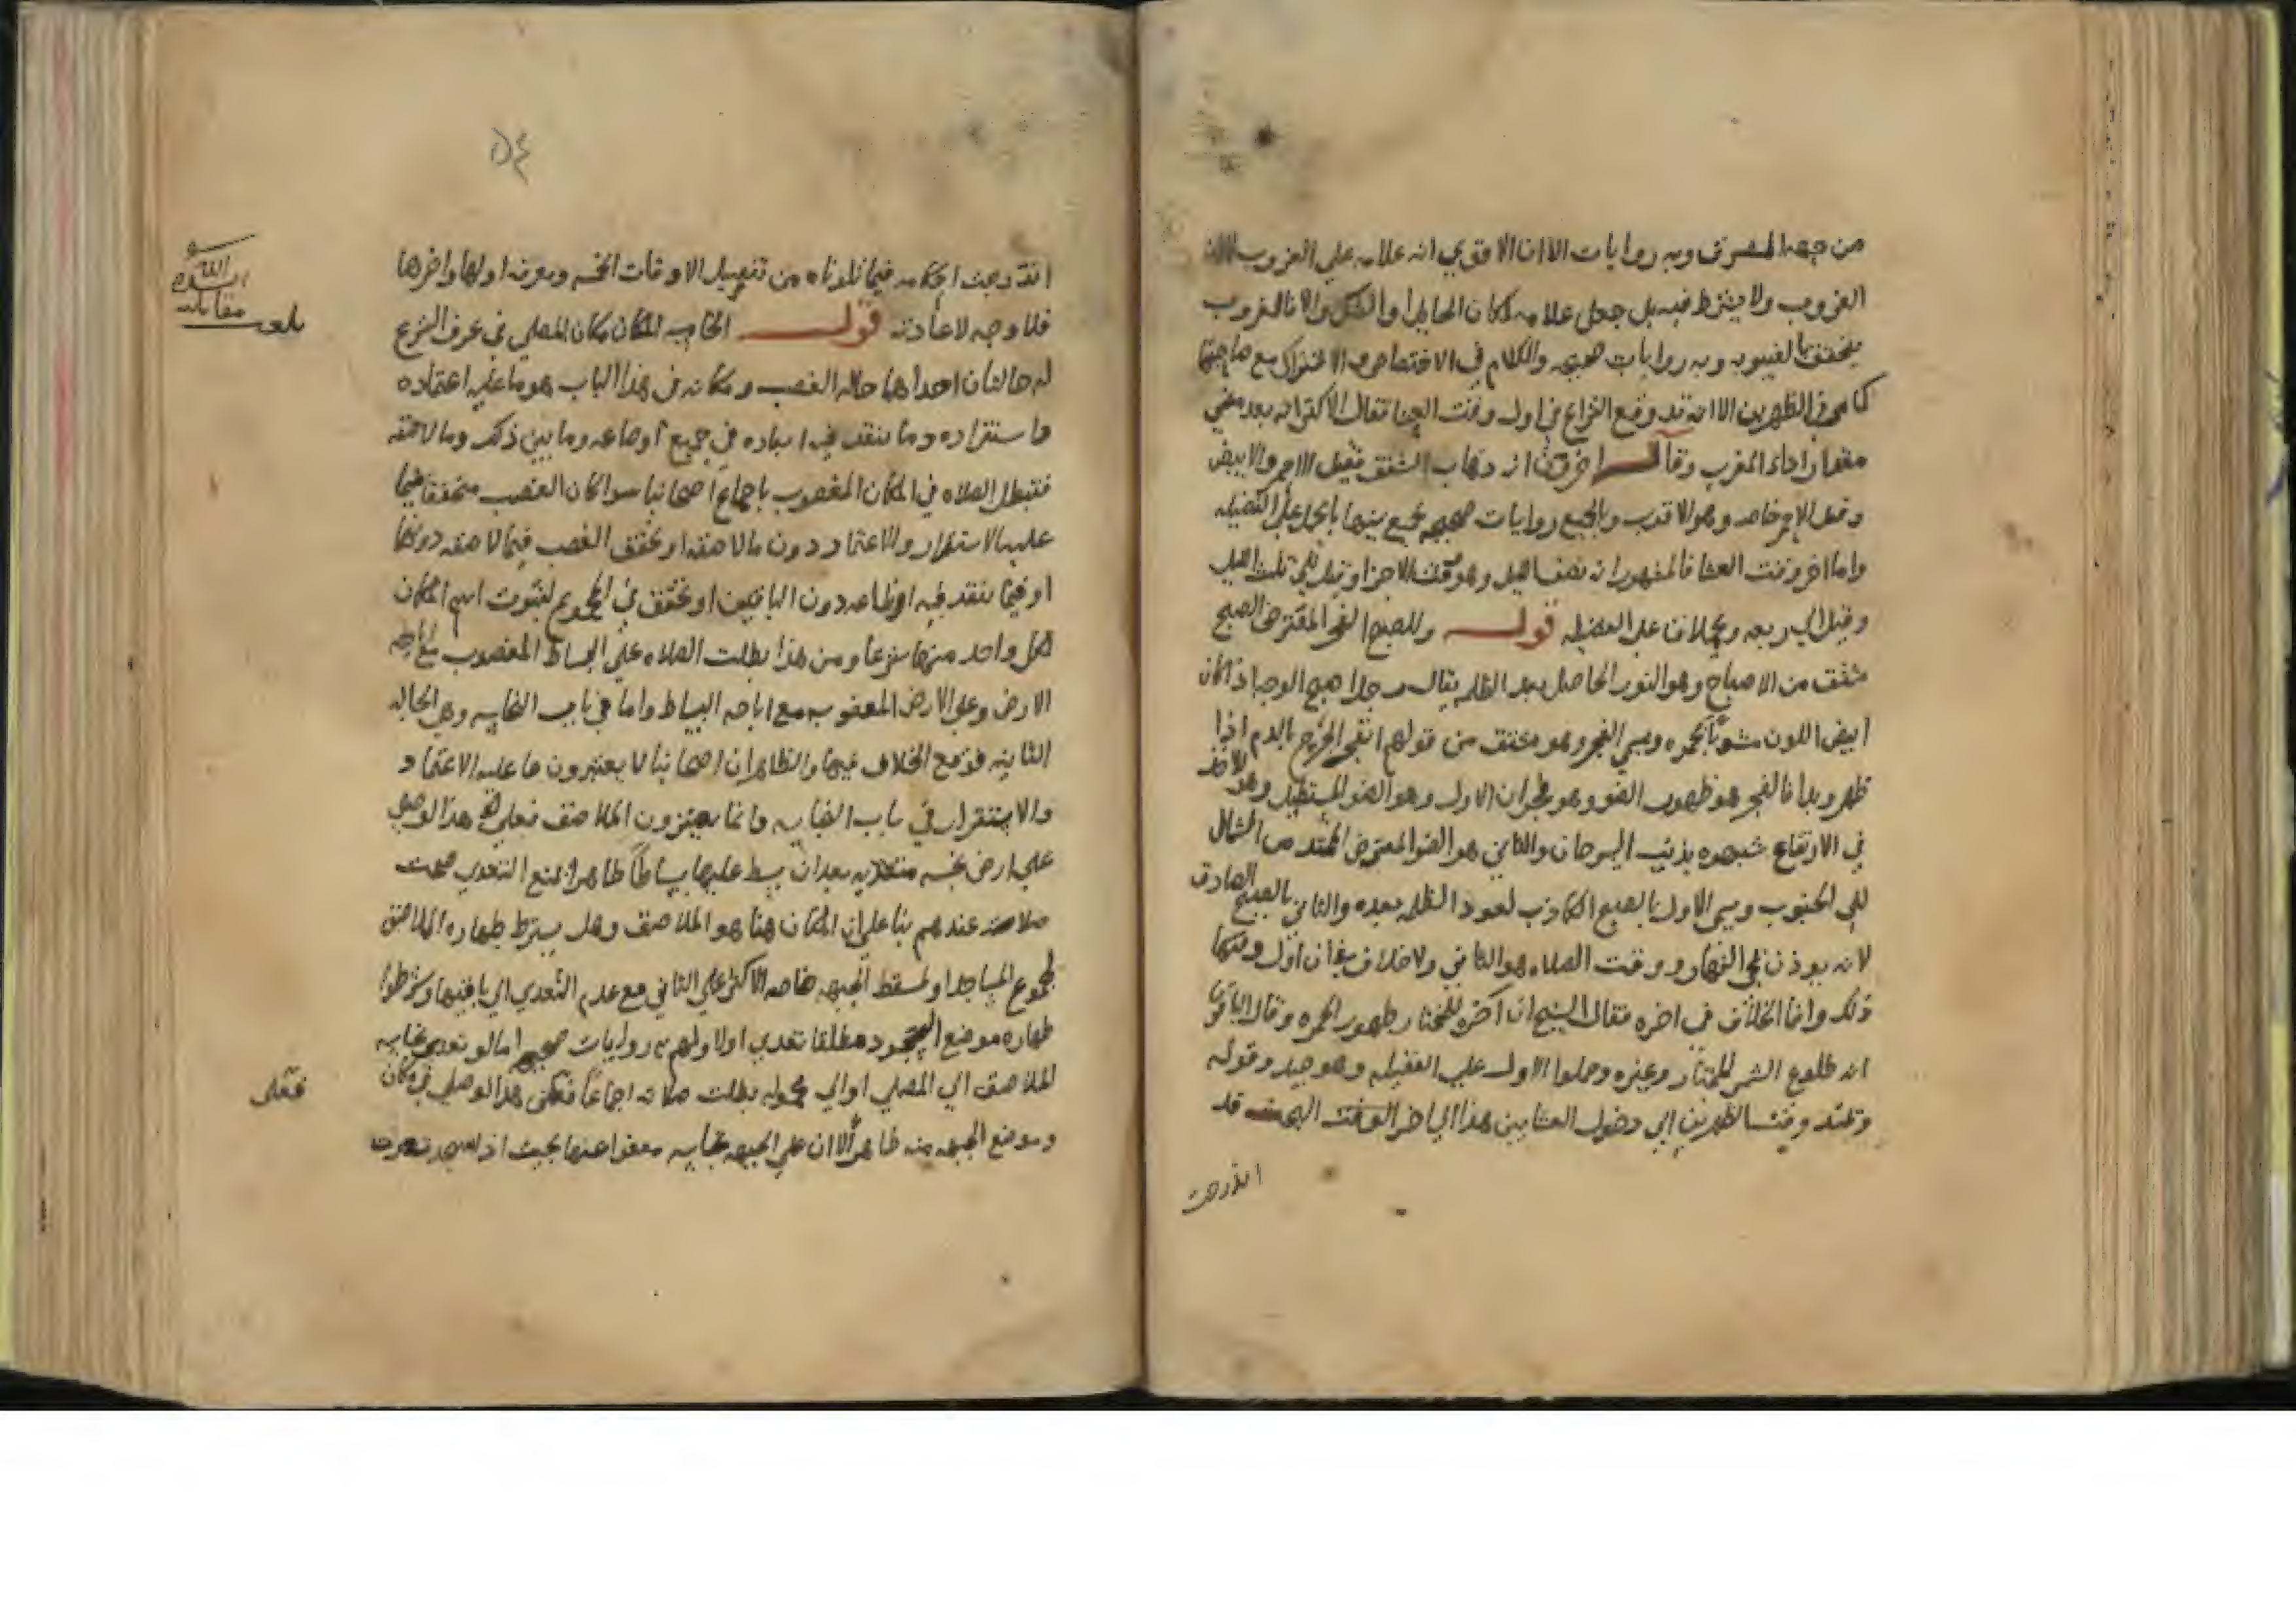 من جهه المشرق وبه روايات الا ان الاقوي انه علامه علي الغروب لا ان
الغروب ولا يشترط فيه بل جعل علامه لمكان الحايل او الشك والا فالغروب
يتحقق بالغيبوبه وبه روايات صحيحه والكلام في الاختصاص والاشتراك مع صاحبتها
كما مر في الظهرين الا انه قد وقع النزاع في اول وقت العشا فقال الاكثر انه بعد مضي
مقدار اداء المغرب وقال اخرون انه ذهاب الشفق فقيل الاحمر والابيض
وقيل الاحمر خاصه وهو الاقرب وبالجميع روايات صحيحه يجمع بينها بالحمل علي الفضيله
واما اخر وقت العشا فالمشهور انه نصف الليل وهو وقت الاجزا وقيل الي ثلث الليل
وقيل الي ربعه ويحملان علي الفضيله قوله وللصبح الفجر المعترض الصبح
مشتق من الاصباح وهو النور الحاصل بعد الظلمه يقال رجل اصبح الوجه اذا كان
ابيض اللون مشوبا بحمره ويسمي الفجر وهو مشتق من قولهم انفجر الجرح بالدم اذا
ظهر وبدا فالفجر هو ظهور الضو وهو فجران الاول وهو الضو المستطيل وهو الاخذ
في الارتفاع شبهوه بذنب السرحان والثاني هو الضو المعترض الممتد من الشمال
الي الجنوب ويسمي الاول بالصبح الكاذب لعود الظلمه بعده والثاني بالصبح الصادق
لانه يوذن بمجي النهار ووقت الصلاه هو الثاني ولا خلاف في ان اول وقتها
ذلك وانما الخلاف في اخره فقال الشيخ ان اخره للمختار ظهور الحمره وقال الباقون
انه طلوع الشمس للمختار وغيره وحملوا الاول علي الفضيله وهو جيد وقوله
وتمتد وقتا الظهرين الي دخول العشايين هذا الي اخر الوقت البحث قد
اندرجت
٥٤
اندرجت احكامه فيما تلوناه من تفصيل الاوقات الخمسه ومعرفه اولها واخرها
فلا وجه لاعادته قوله الخامسه المكان مكان المصلي في عرف الشرع
له حالتان احداهما حاله الغصب ومكانه في هذا الباب هو ما عليه اعتماده
واستقراره وما ينفذ فيه ابعاده في جميع اوضاعه وما بين ذلك وما لاصقه
فتبطل الصلاه في المكان المغصوب باجماع اصحابنا سوا كان الغصب متحققا فيما
عليه الاستقرار والاعتماد دون ما لاصقه او تحقق الغصب فيما لاصقه دونها
او فيما ينفذ فيه اوضاعه دون الباقين او تحقق في المجموع لثبوت اسم المكان
لكل واحد منها شرعا ومن هذا بطلت الصلاه علي البساط المغصوب مع اباحه
الارض وعلي الارض المغصوبه مع اباحه البساط واما في باب النجاسه وهي الحاله
الثانيه فوقع الخلاف فيها والظاهر ان اصحابنا لا يعتبرون ما عليه الاعتماد
والاستقرار في باب النجاسه وانما يعتبرون الملاصق فعلي هذا لو صلي
علي ارض نجسه بعد ان بسط عليها بساطا طاهرا يمنع التعدي صحت
صلاته عندهم بنا علي ان المكان هنا هو الملاصق وهل يشترط طهاره الملاصق
لمجموع المساجد او لمسقط الجبهه خاصه الاكثر علي الثاني مع عدم التعدي الي باقيها وشرطوا
طهاره موضع السجود مطلقا تعدي اولا ولهم به روايات صحيحه اما لو تعدي نجاسه
الملاصق الي المصلي او الي محموله بطلت صلاته اجماعا فعلي هذا لو صلي في مكان
وموضع الجبهه منه طاهرا الا ان علي الجبهه نجاسه معفوا عنها بحيث اذا سجد تعدت
بلغت مقابله
فعلي